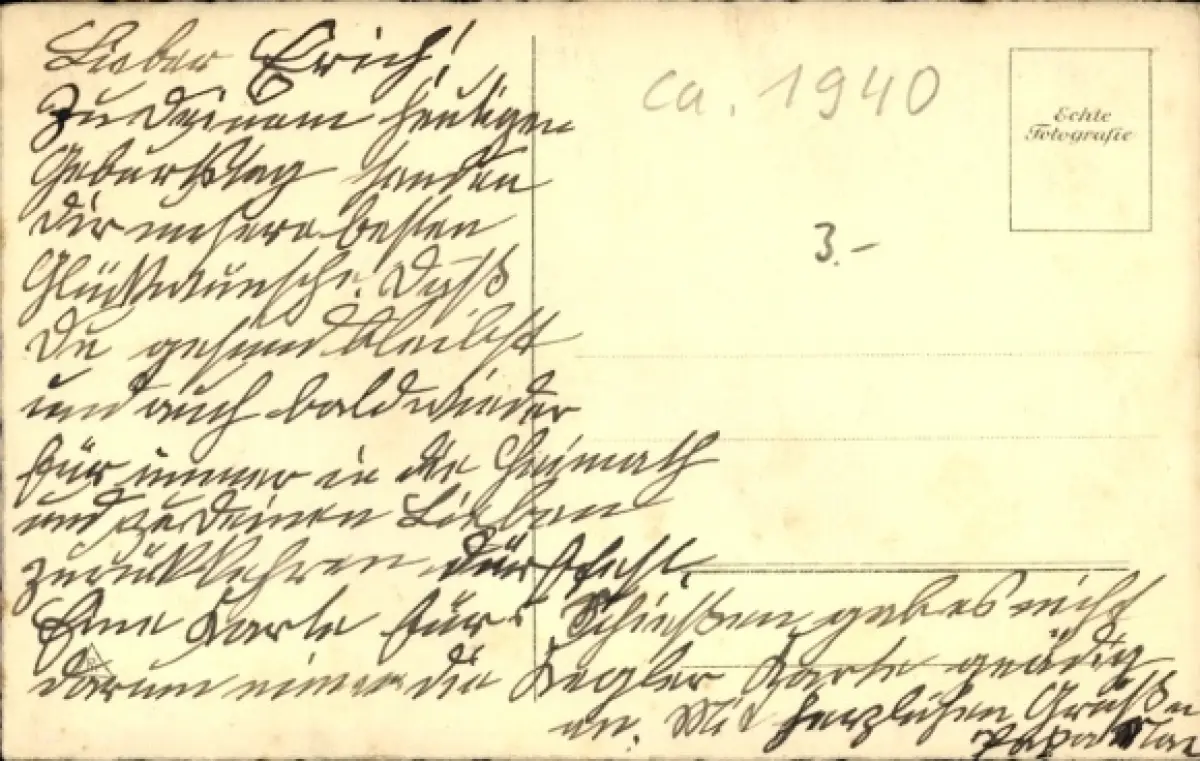 Lieber Erich!
Zu Deinem heutigen
Geburtstag senden
Dir unsere besten
Glückwünsche. Daß
Du gesund bleibst
und auch bald wieder
für immer in die Heimath
und zu Deinen Lieben
zurückkehren dürftest.
Eine Karte für's Schießen gab es nicht
darum nimm die Kegler Karte
an. Mit herzlichen Grüßen
Papa
ca. 1940
Echte
Fotografie
3.-